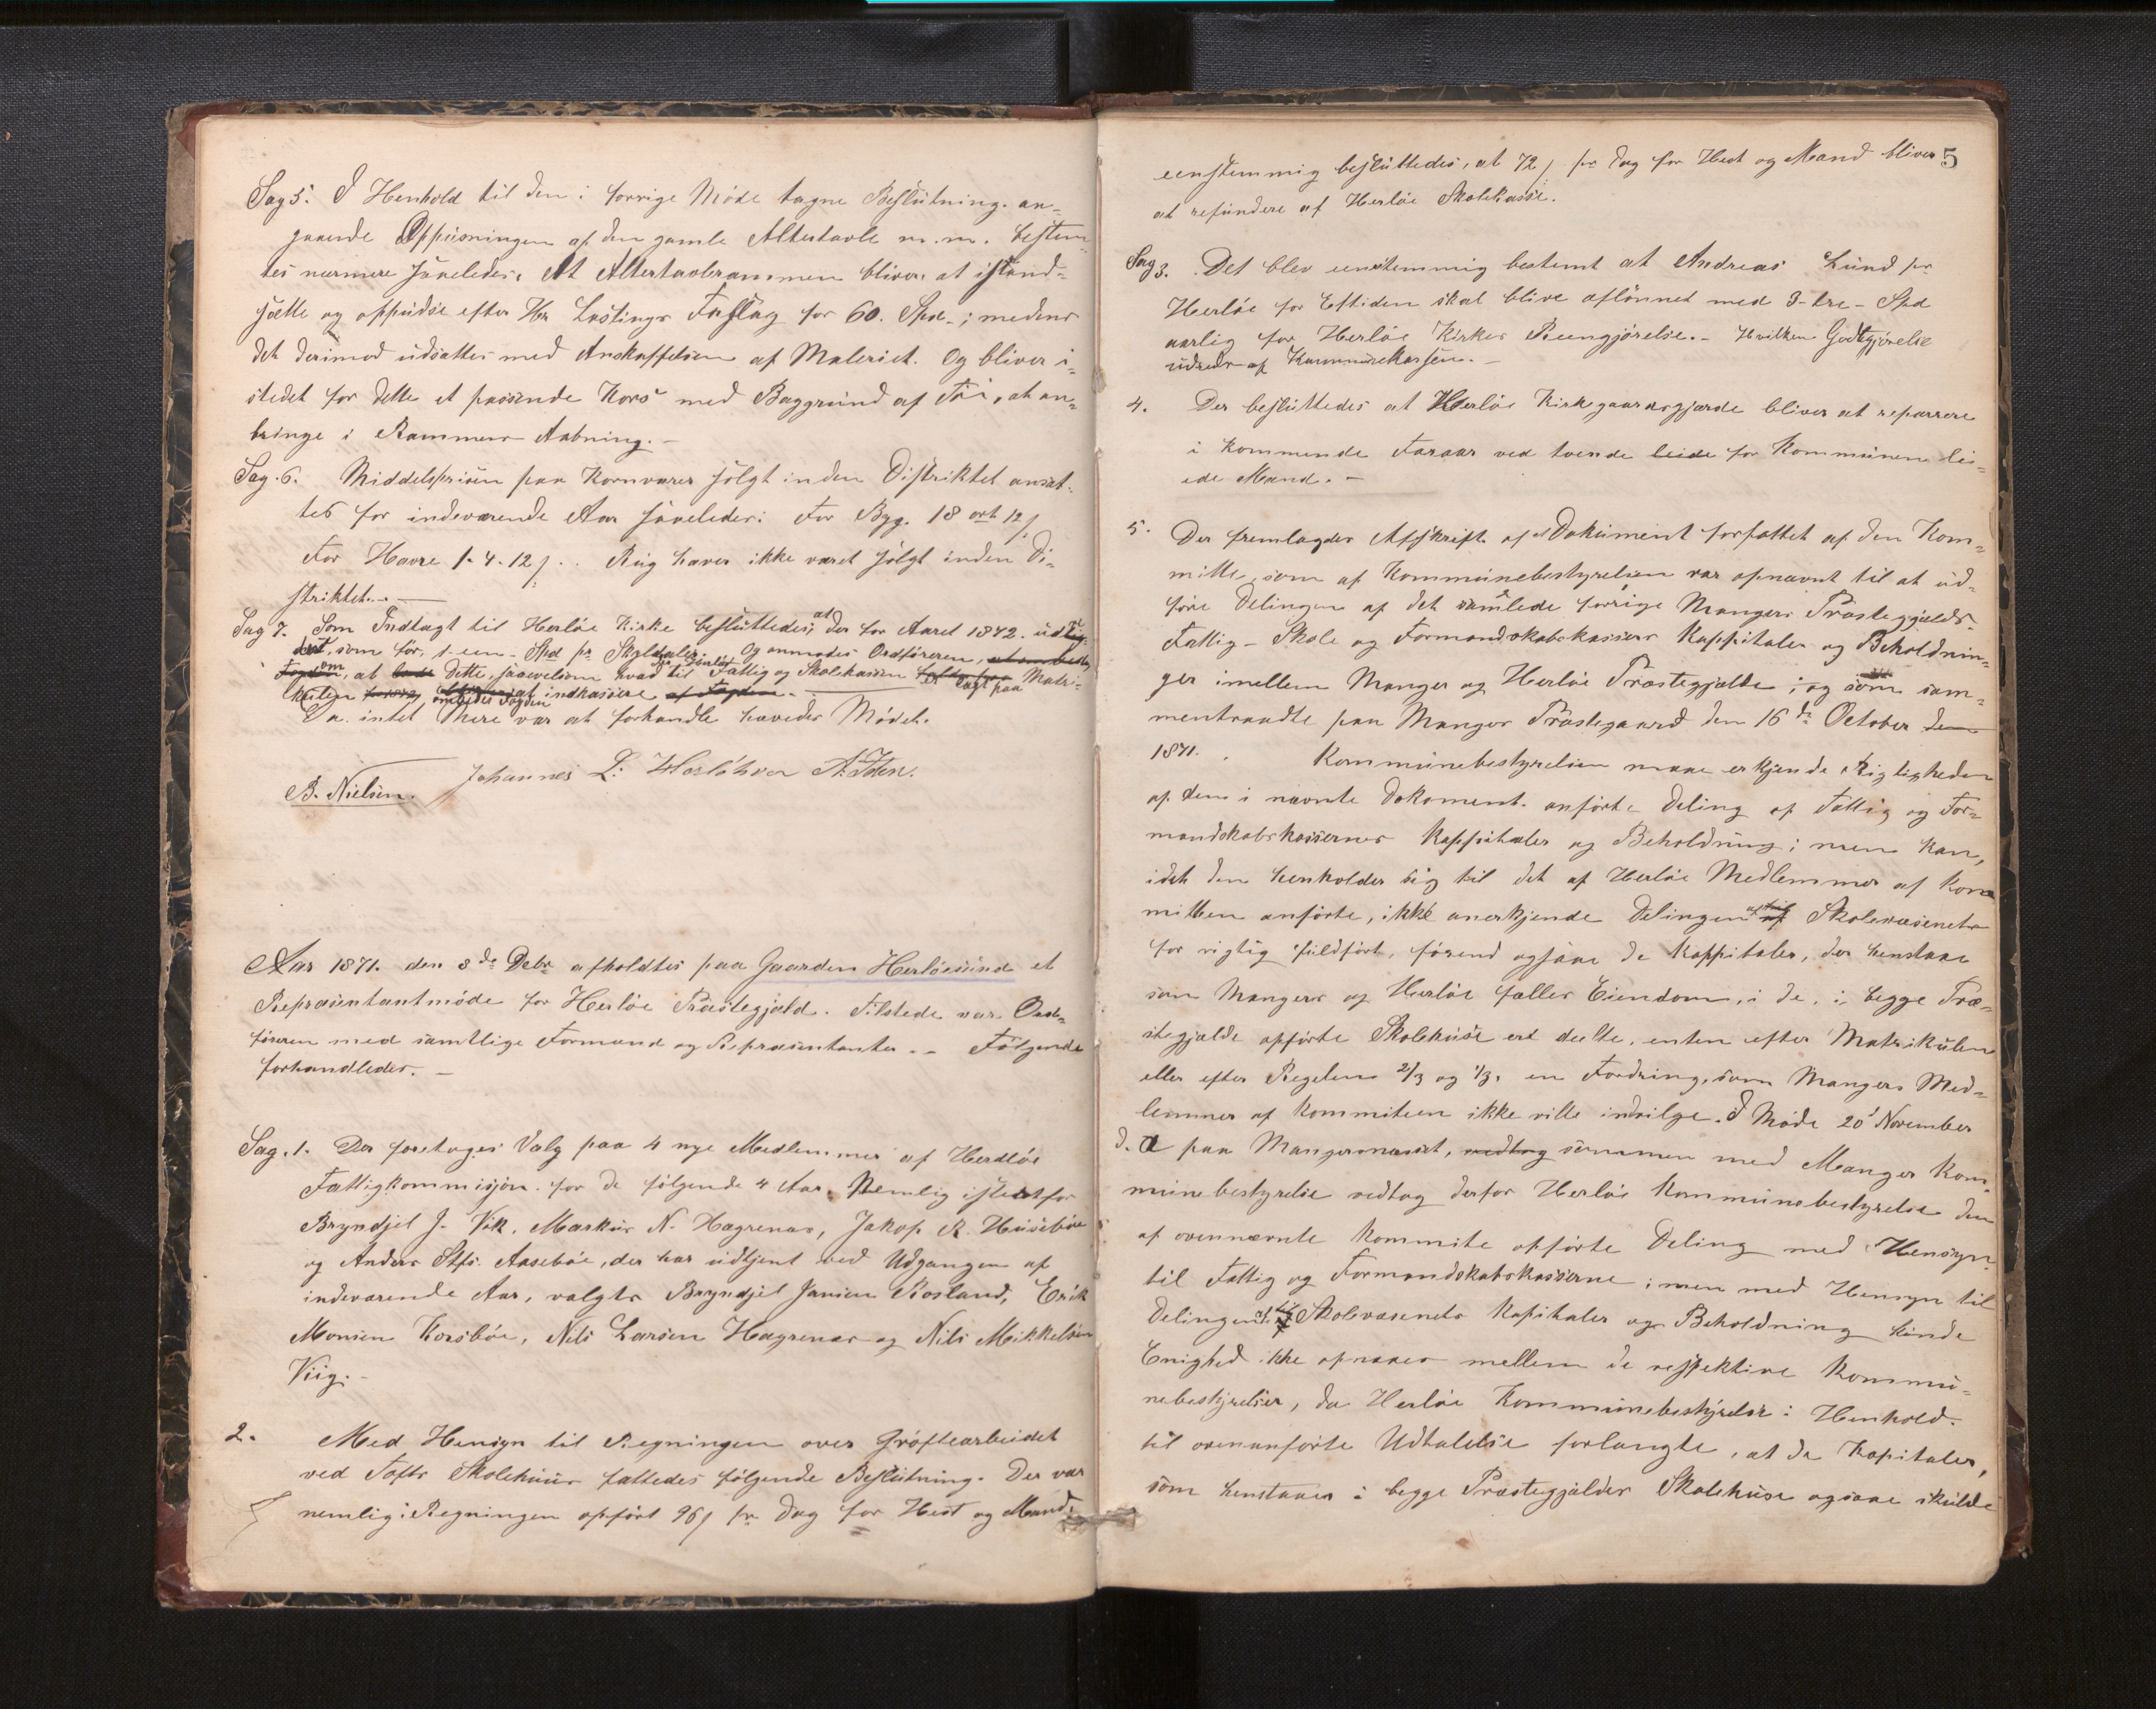 Sag 5. I Henhold til den i forrige Møde tagne Beslutning. an-
gaaende Oppusningen af den gamle Altertavle m.m. bestem-
tes nærmere saaledes: At Altertavlerammen bliver at istand-
sætte og oppudse efter Hr Lostings Forslag for 60. Spd.; medens
det derimod udsættes med Anskaffelsen af Maleriet. Og bliver i-
stedet for dette et passende Kors med Baggrund af Træ, at an-
bringe i Rammens Aabning. -
Sag. 6. Middelprisen paa Kornvarer solgt inden Distriktet ansat-
tes for indeværende Aar saaledes: For Byg. 18 ort 12 s
For Havre 1. 4. 12 s. Rug haver ikke været solgt inden Di-
striktet. -
Sag 7. Som Indtægt til Herløe Kirke besluttedes, at der for Aaret 1872. udlig-
des, som før, 1-een- Spd pr Skyldaler. Og anmodes Ordføreren
om, at dette, saavelsom hvad til Fattig og Skolekassen er lagt paa Matri-
kulen ombedes Fogden at indkassere af Fogden. -
Da intet mere var at forhandle hævedes Mødet.
B. Nielsen. Johannes L: Herløhver A. Iden.
Aar 1871. den 8de Debr afholdtes paa Gaarden Herløesund et
Repræsentantmøde for Herløe Præstegjæld. Tilstede var Ord-
føreren med samtlige Formænd og Repræsentanter. - Følgende
forhandledes. -
Sag. 1. Der foretoges Valg paa 4 nye Medlemmer af Herdløe
Fattigkommisjon for de følgende 4 Aar. Nemlig istedetfor
Bryndjel J. Vik, Markus N. Hagrenæs, Jakop R. Husebøe
og Anders Stfs. Aasebøe, der har udtjent ved Udgangen af
indeværende Aar, valgtes Bryndjel Jansen Rosland, Erik
Monsen Korsbøe, Nils Larsen Hagrenæs og Nils Mikkelsen
Viig. -
2. Med Hensyn til Regningen over Grøftearbeidet
ved Tofts Skolehuus fattedes følgende Beslutning. Der var
nemlig i Regningen opført 96 s pr Dag for Hest og Mand,
5
eenstemmig besluttedes, at 72 s pr Dag for Hest og Mand bliver
at refundere af Herløe Skolekasse.
Sag 3. Det blev eenstemmig bestemt at Andreas Lund pr
Herløe for Eftiden skal blive aflønnet med 3-tre- Spd
aarlig for Herløe Kirkes Reengjørelse. - Hvilken Godtgjørelse
udredes af Kommunekassen. -
4. Der besluttedes at Herløe Kirkegaardsgjærde bliver at reparere
i Kommende Foraar ved tvende leide for Kommunen lei-
ede Mænd. -
5. Der fremlagdes Afskrift af et Dokument forfattet af den Kom-
mitte, som af Kommunebestyrelsen var opnævnt til at ud-
føre Delingen af det samlede forrige Mangers Præstegjælds-
Fattig- Skole og Formandskabskassers Kappitaler og Beholdnin-
ger imellem Manger og Herløe Præstegjælde; og som sam-
mentraadte paa Manger Præstegaard den 16de October den
1871. Kommunebestyrelsen maae erkjende Rigtigheden
af den i nævnte Dokoment anførte Deling af Fattig og For-
mandskabskassernes Kappitaler og Beholdning; men kan,
idet den henholder sig til det af Herløe Medlemmer af Kom-
mitten anførte, ikke anerkjende Delingen af Skolevæsenets
for rigtig fuldført, førend ogsaae de Kappitaler, der henstaae
som Mangers og Herløe fælles Eiendom, i de, i begge Præ-
stegjælde opførte Skolehuse ere deelte, enten efter Matrikulen
eller efter Regelen 2/3 og 1/3, en Fordring, som Mangers Med-
lemmer af Kommiteen ikke ville indvilge. I Møde 20d November
d. A paa Mangersnæsset, vedtog sammen med Manger Kom-
munebestyrelse vedtog derfor Herløe Kommunebestyrelse den
af ovennævnte Kommite opførte Deling med Hensyn
til Fattig og Formandskabskasserne; men med Hensyn til
Delingen af Skolevæsenets Kapitaler og Beholdning kunde
Enighed ikke opnaaes mellem de respektive Kommu-
nebestyrelser, da Herløe Kommunebestyrelse i Henhold
til ovenanførte Udtalelse forlangte, at de Kapitaler,
som henstaaer i begge Præstegjælder Skolehuse ogsaae skulde